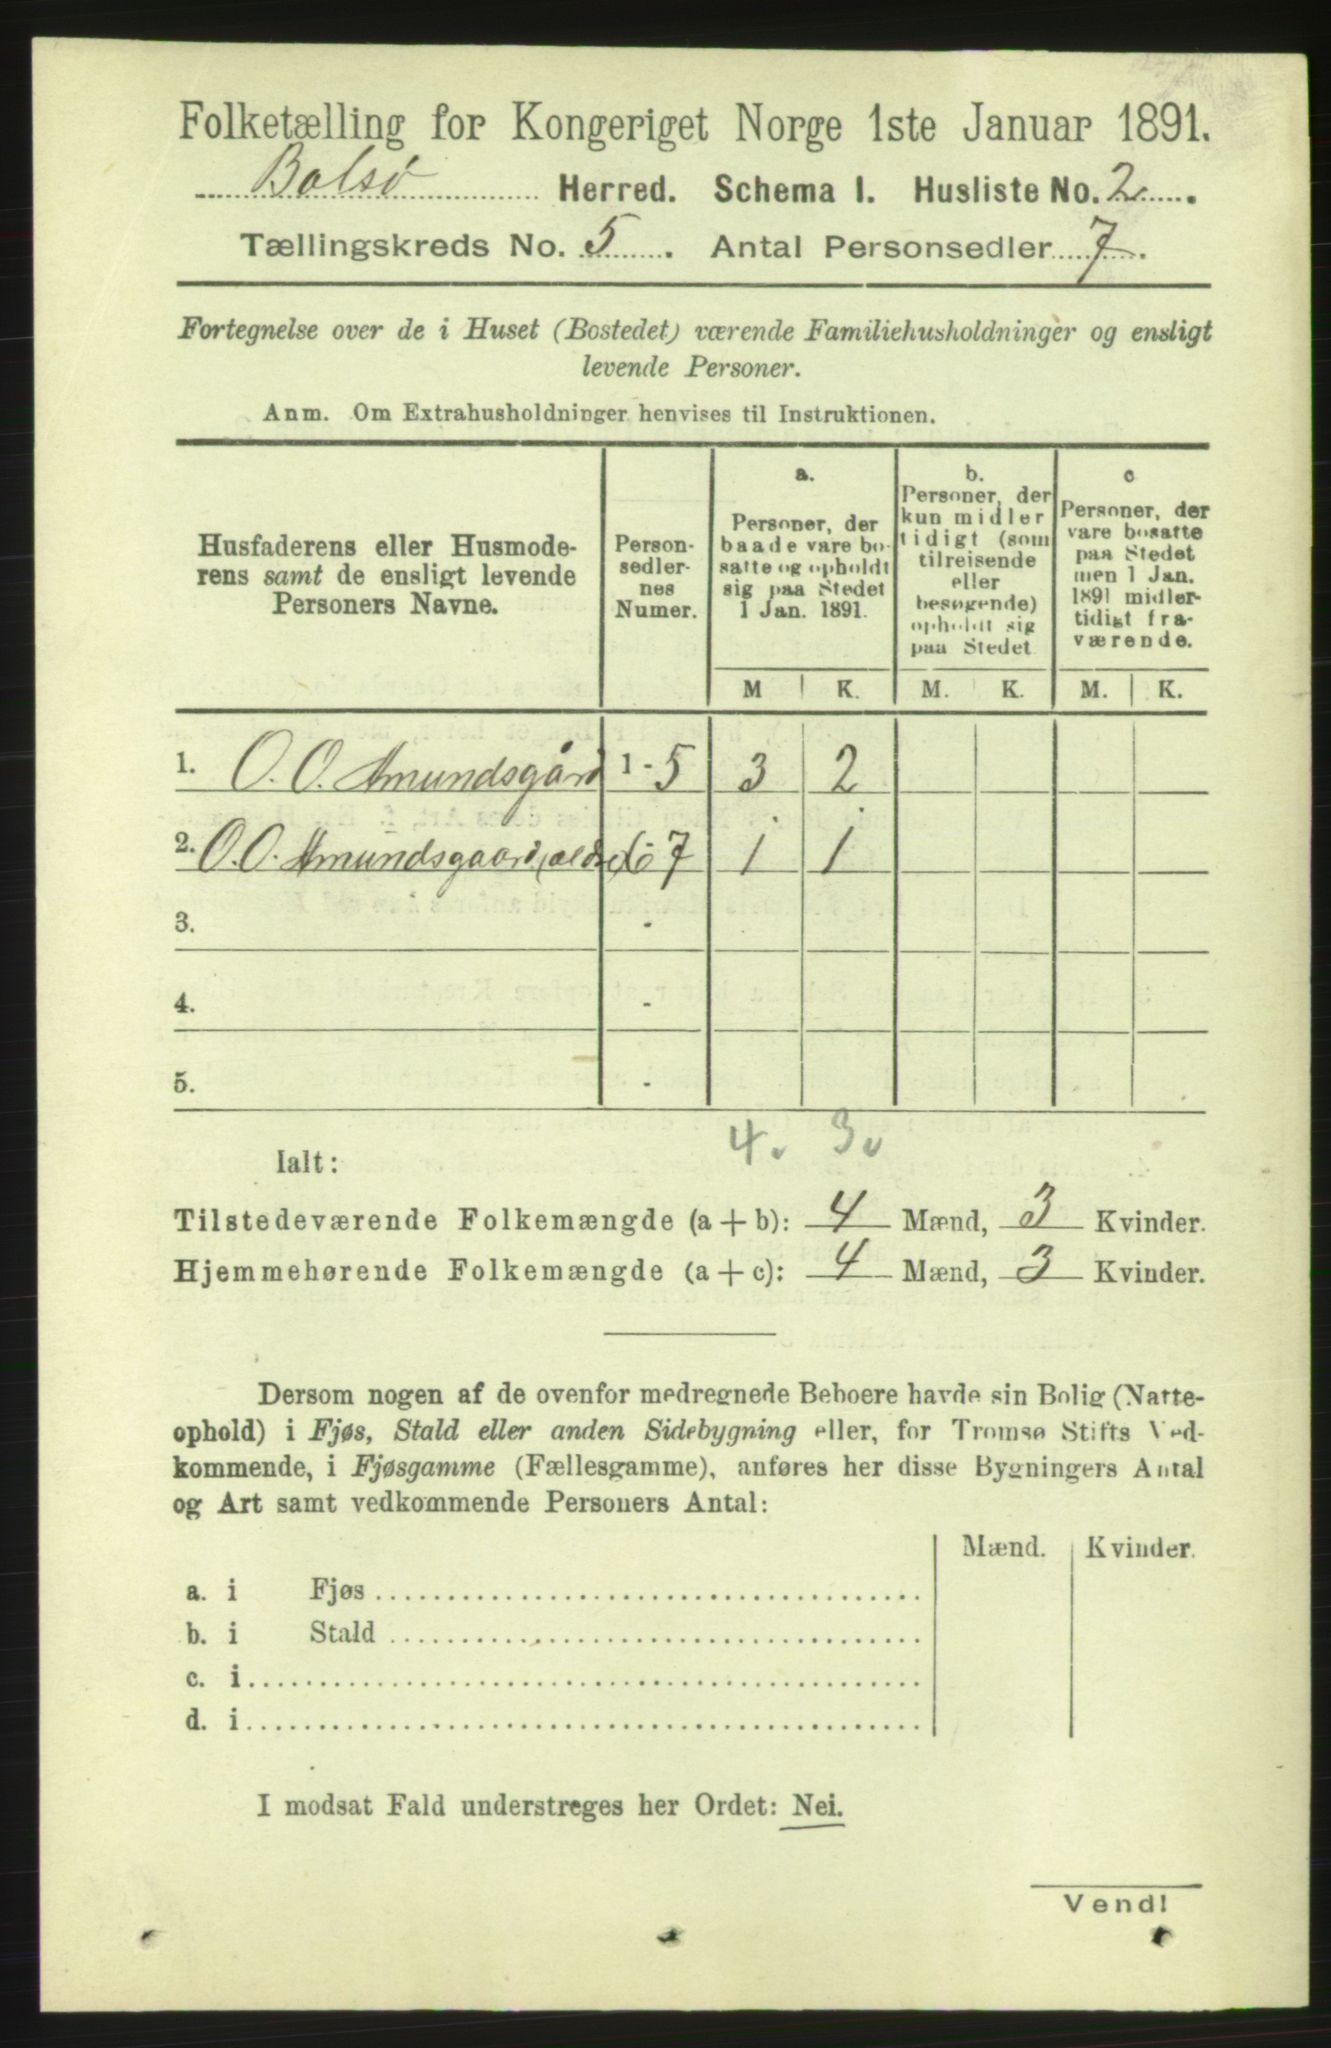 Folketælling for Kongeriget Norge 1ste Januar 1891.
Bolsø Herred. Schema I. Husliste No. 2.
Tællingskreds No. 5. Antal Personsedler 7.
Fortegnelse over de i Huset (Bostedet) værende Familiehusholdninger og ensligt
levende Personer.
Anm. Om Extrahusholdninger henvises til Instruktionen.
Husfaderens eller Husmode-
rens samt de ensligt levende
Personers Navne.
Person-
sedler-
nes
Numer.
a.
Personer, der
baade vare bo-
satte og opholdt
sig paa Stedet
1 Jan. 1891.
b.
Personer, der
kun midler
tidigt (som
tilreisende
eller
besøgende)
opholdt sig
paa Stedet
c
Personer, der
vare bosatte
paa Stedet
men 1 Jan.
1891 midler-
tidigt fra-
værende.
M K. M. K. M. K.
1. O. O. Amundsgård 1 - 5 3 2
2. O. O. Amundsgaard, (ældre) 6 - 7 1 1
3. -
4. -
5. -
4. 3
Ialt:
Tilstedeværende Folkemængde (a + b): 4 Mænd, 3 Kvinder.
Hjemmehørende Folkemængde (a + c): 4 Mænd, 3 Kvinder.
Dersom nogen af de ovenfor medregnede Beboere havde sin Bolig (Natte-
ophold) i Fjøs, Stald eller anden Sidebygning eller, for Tromsø Stifts Ved-
kommende, i Fjøsgamme (Fællesgamme), anføres her disse Bygningers Antal
og Art samt vedkommende Personers Antal:
Mænd. Kvinder.
a. i Fjøs
b. i Stald
c. i
d. i
I modsat Fald understreges her Ordet: Nei.
Vend!